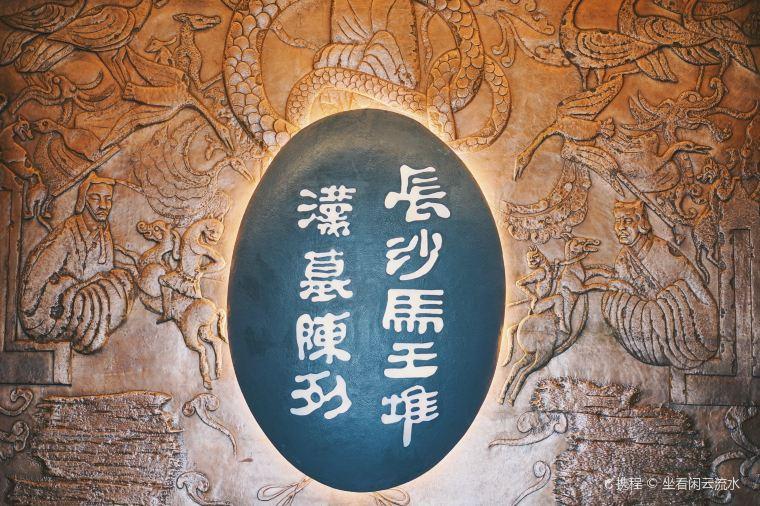 長沙馬王堆
漢墓陳列
携程 © 坐看闲云流水